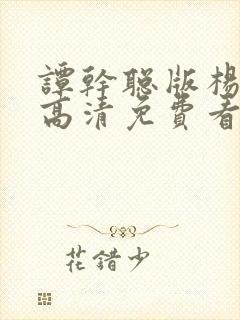 譚幹聰版楊
高清免費看
花錯少